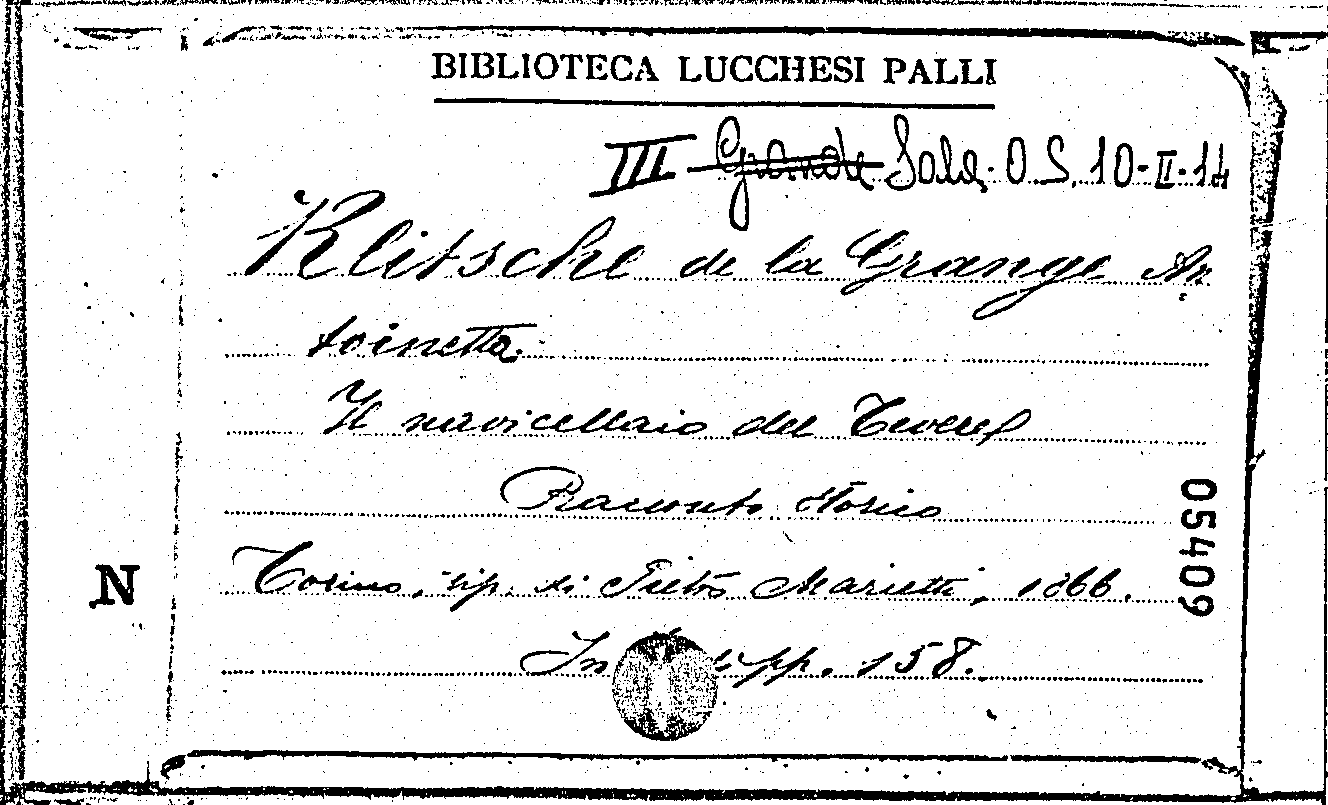 BIBLIOTECA LUCCHESI PALLI
III Grande Sala. O.S. 10-II-14
Klitsche de la Grange An
toinetta.
Il navicellaio del Tevere
Racconto storico
Torino, tip. di Pietro Marietti, 1866.
In pp. 158.
N
05409